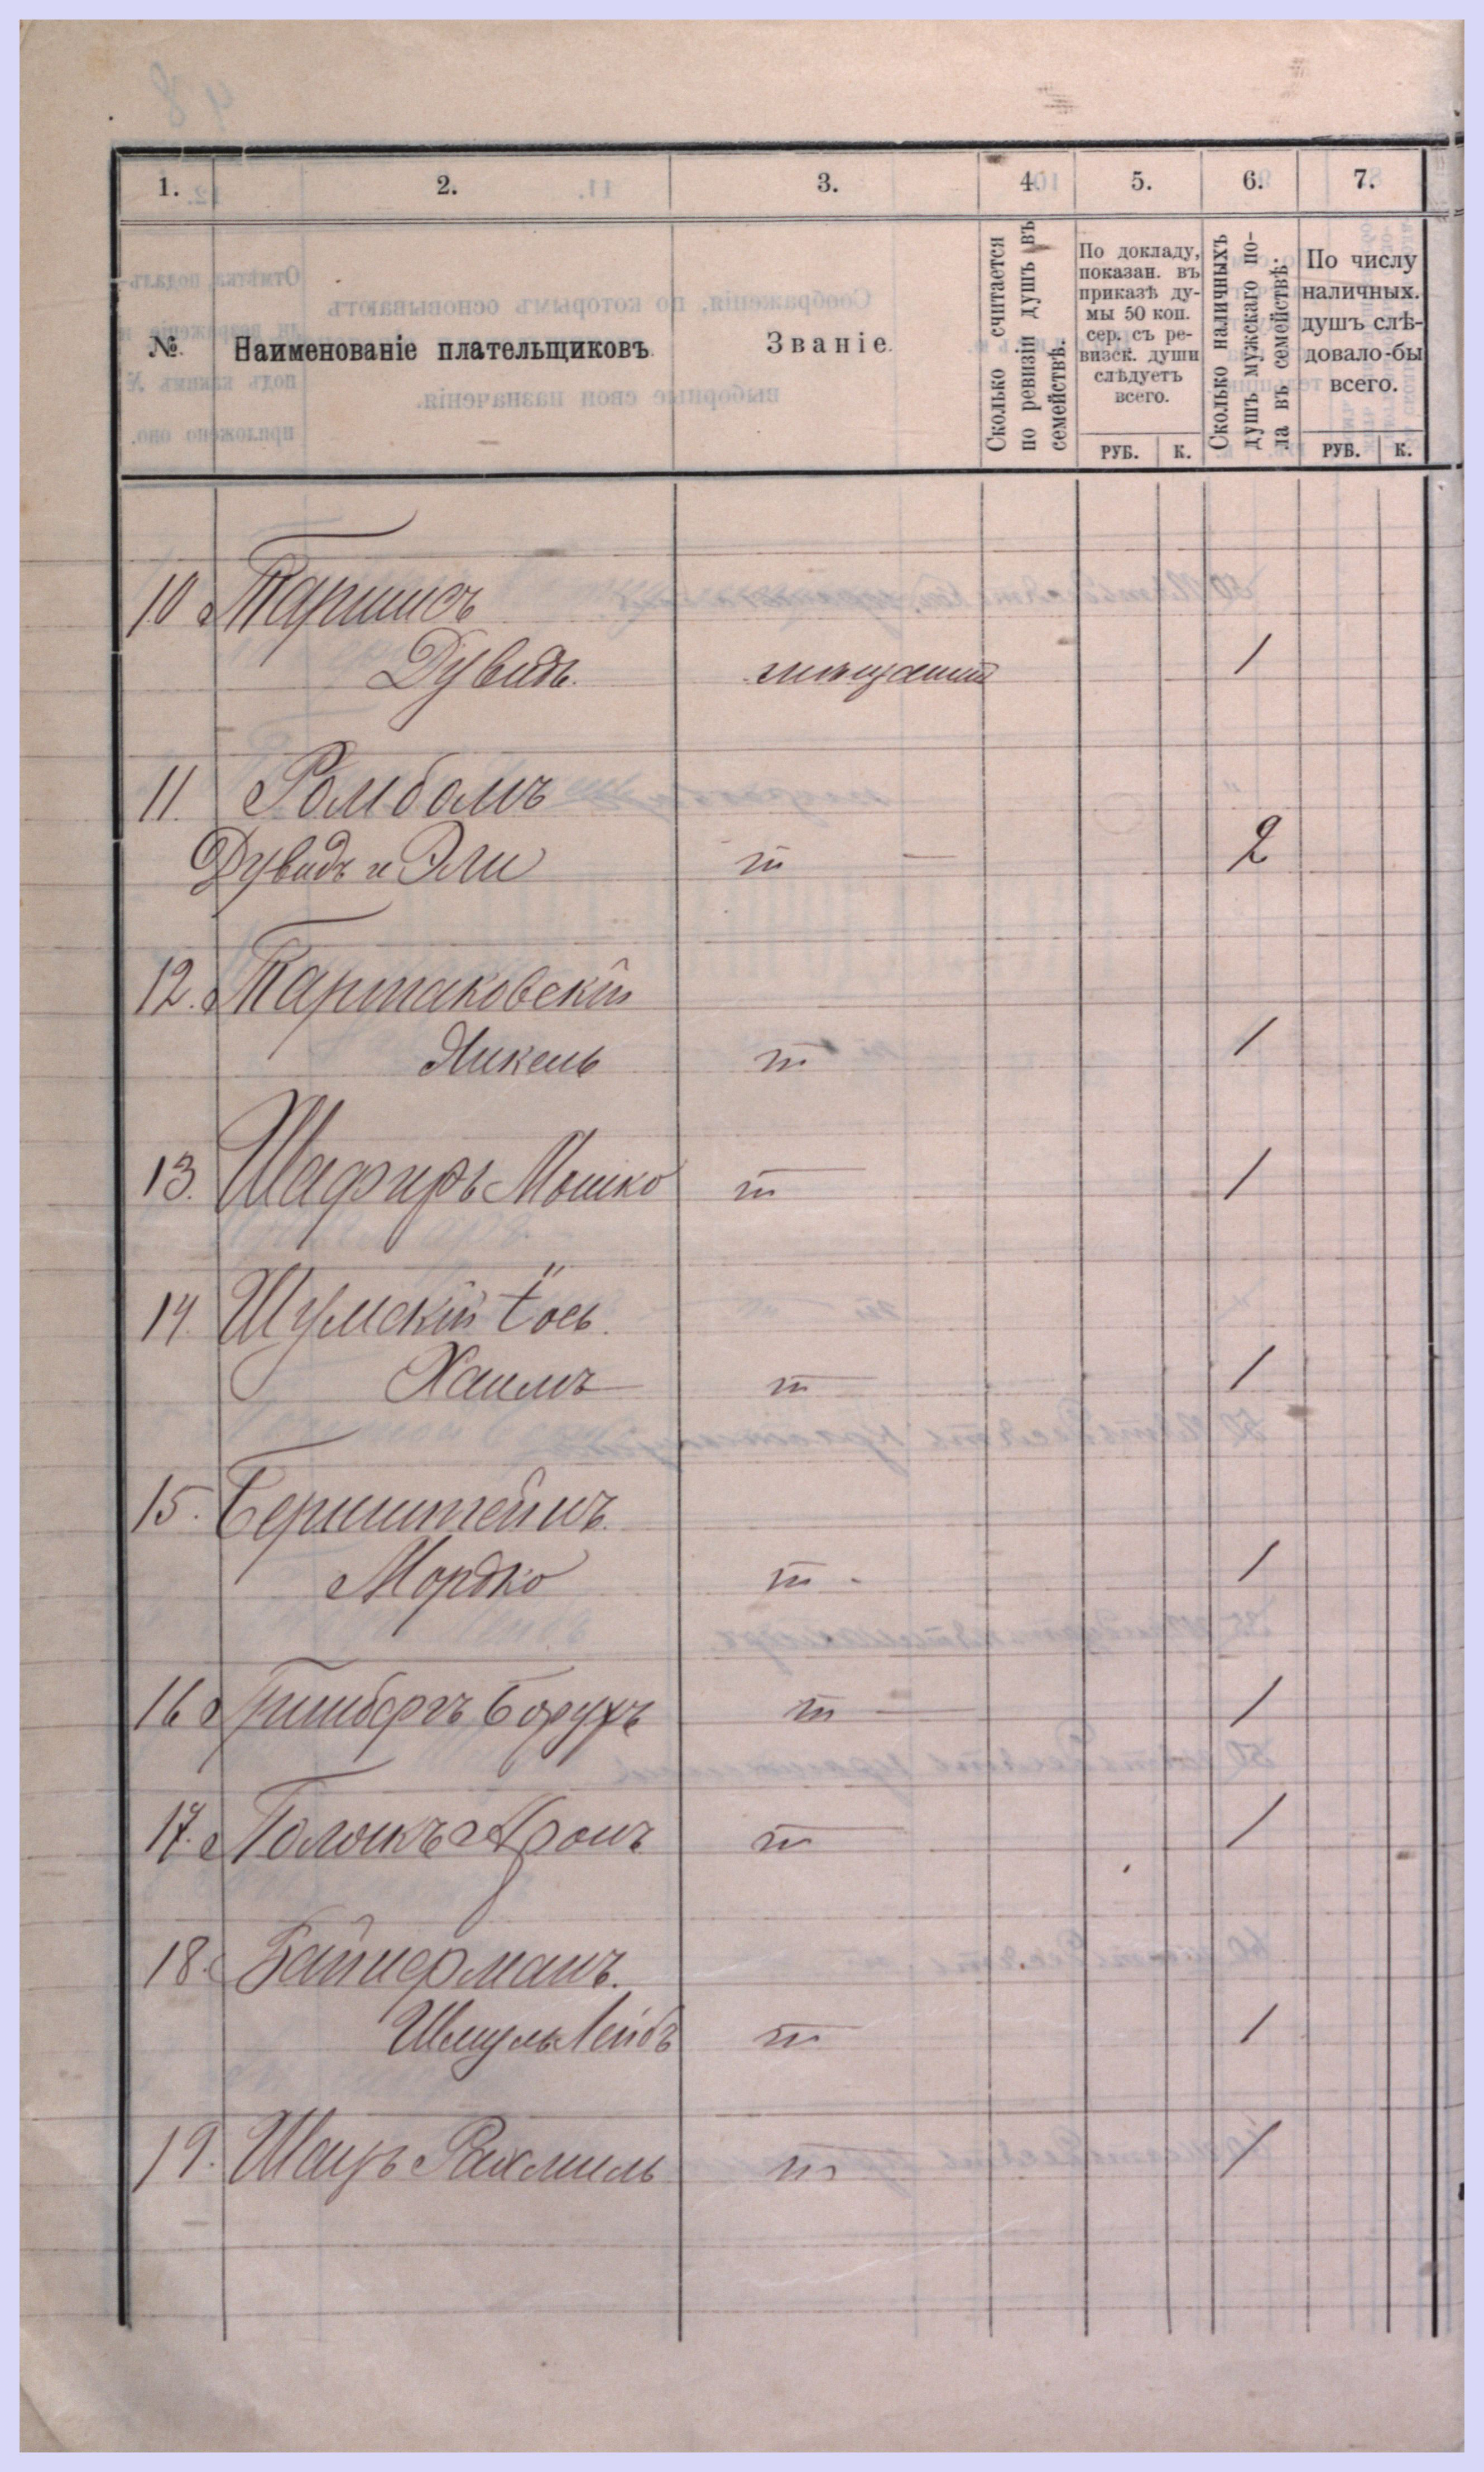 1. 2. 3. 4. 5. 6. 7.
№. Наименованіе плательщиковъ. Званіе. Сколько считается по ревизіи душъ въ семействѣ. По докладу, показан. въ приказѣ думы 50 коп. сер. съ ревизск. души слѣдуетъ всего. Сколько наличныхъ душъ мужскаго пола въ семействѣ. По числу наличныхъ. душъ слѣдовало-бы всего.
РУБ. К. РУБ. К.
10 Таршисъ
Дувидъ. мѣщанинъ 1
11. Ромбомъ
Дувидъ и Эли т 2
12. Тартаковскій
Янкель т 1
13. Шафиръ Мошко т 1
14. Шумскій Іось
Хаимъ т 1
15. Бернштейнъ.
Мордко т 1
16 Гринбергъ Борухъ т 1
17. Полякъ Аронъ т 1
18. Файнерманъ.
Шмуль Лейбъ т 1
19. Шацъ Рахмиль т 1